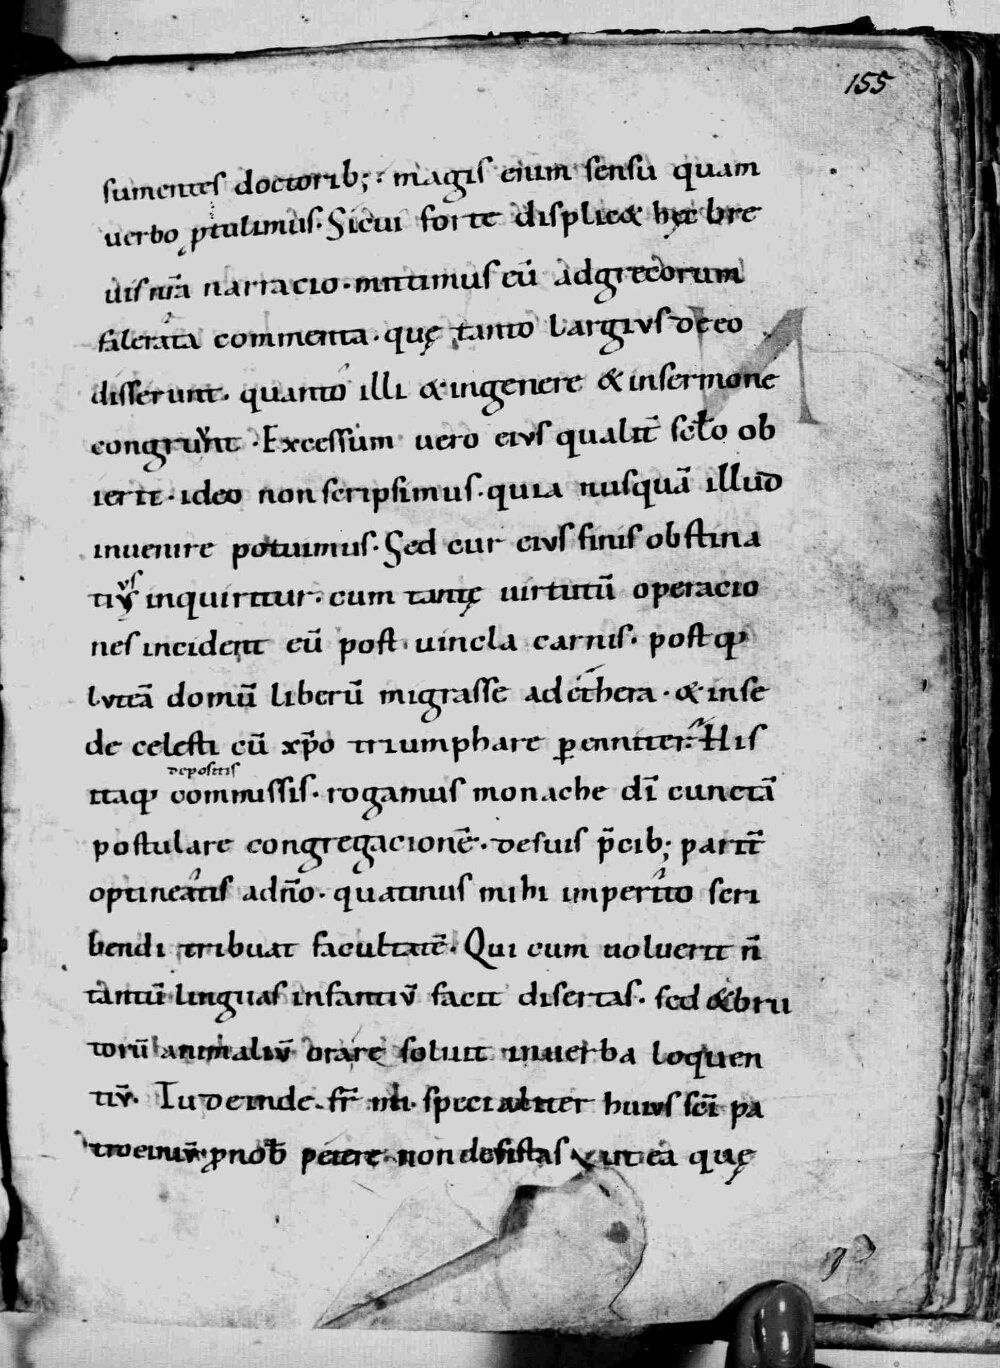 155
sumentes doctorib; magis eium sensu quam
uerbo ptulimus. Sicui forte displic& hęc bre
uis nr̄a narracio. mittimus eū adgrecorum
falerata commenta. quę tanto largius deeo
disserunt. quanto illi & ingenere & insermone
congruunt. Excessum uero eius qualit̄ sclo ob
ierit. ideo non scripsimus. quia nusquā illud
inuenire potuimus. Sed cur eius finis obstina
tius inquiritur. cum tantę uirtutū operacio
nes incident eū post uincla carnis. postq;
luteā domū liberū migrasse ad ethera. & inse
de celesti cū xp̄o triumphare ꝑenniter. His
depositis
itaq; commissis. rogamus monache dī cunctā
postulare congregacionē. desuis p̄cib; partit̄
optineatis adn̄o. quatinus mihi imperito scri
bendi tribuat facultatē. Qui cum uoluerit n̄
tantū linguas infantiū facit disertas. sed & bru
torū animaliū orare soluit inuerba loquen
tiū. Tu deinde fr̄ mi specialiter huius sc̄i pa
trociniū ꝓnob̄ petere non desistas ut ea quę